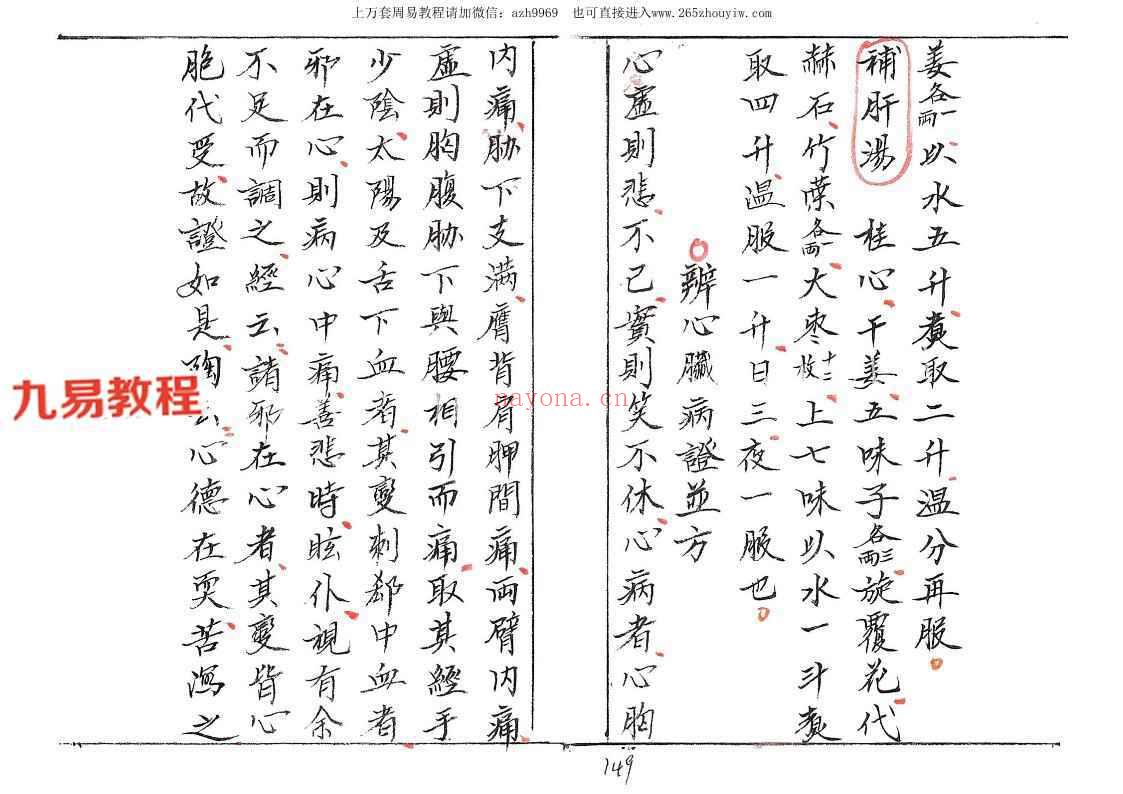 上万套周易教程请加微信：azh9969　也可直接进入www.265zhouyiw.com
姜各一两以水五升煮取二升温分再服
補肝湯　桂心干姜五味子各三两旋覆花代
赫石竹葉各一两大枣十二枚上七味以水一斗煮
取四升温服一升日三夜一服也
辨心臟病證並方
心虛則悲不已實則笑不休心病者心胸
内痛胁下支满膺背肩胛間痛两臂内痛
虛則胸腹胁下與腰相引而痛取其經手
少陰太陽及舌下血者其變刺郄中血者
邪在心則病心中痛善悲時眩仆視有余
不足而調之經云諸邪在心者其變皆心
胞代受故證如是陶云心德在耎苦瀉之
149
九易教程
nayona.cn